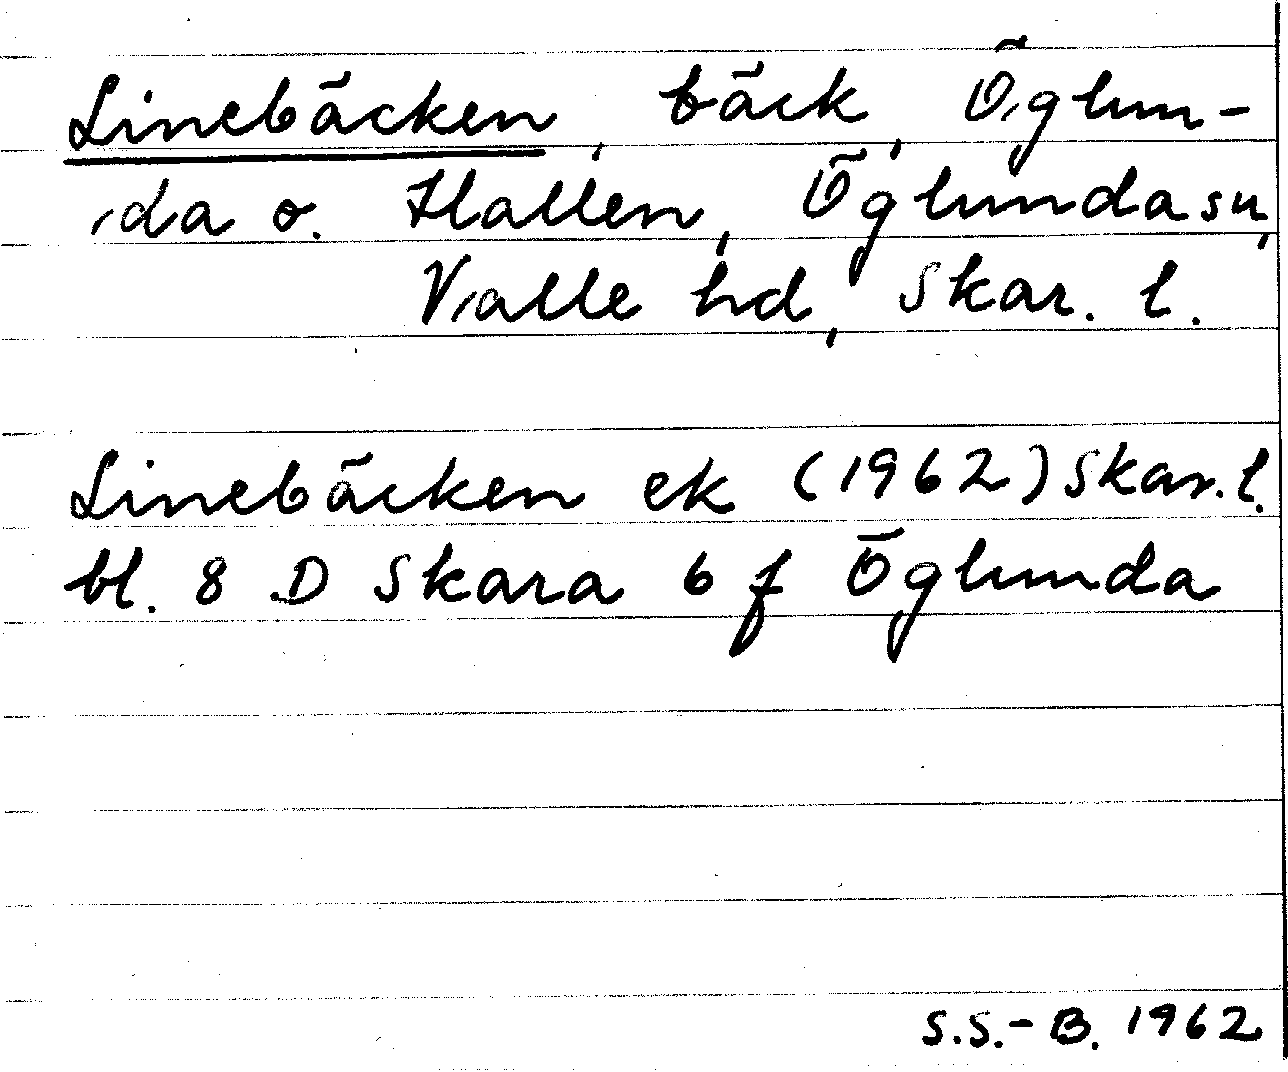 Linebäcken, bäck, Öglun-
da o. Hallen, Öglundasn,
Valle hd, Skar. l.
Linebäcken ek (1962) Skar. l.
bl. 8 D Skara 6 f Öglunda
S.S.-B. 1962